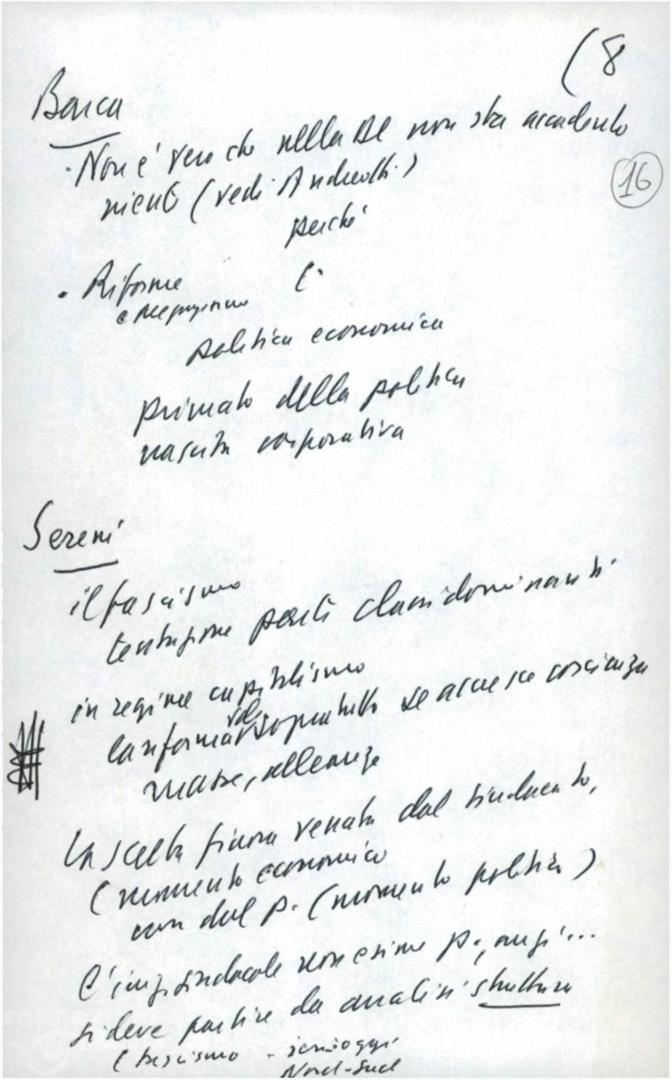 (8
Barca
· Non è vero che nella DC non sta accadendo
niente (vedi Andreotti)
16
perché
· Riforme
politica economica
primato della politica
nascita corporativa
Sereni
il fascismo
tentazione parti classi dominanti
in regime capitalismo
la riforma vale soprattutto se accresce coscienza
masse, alleanze
La scelta finora venuta dal sindacato,
(momento economico
non dal p. (momento politico)
sindacale non esime p., anzi...
si deve partire da analisi struttura
(fascismo - ieri oggi
Nord-Sud